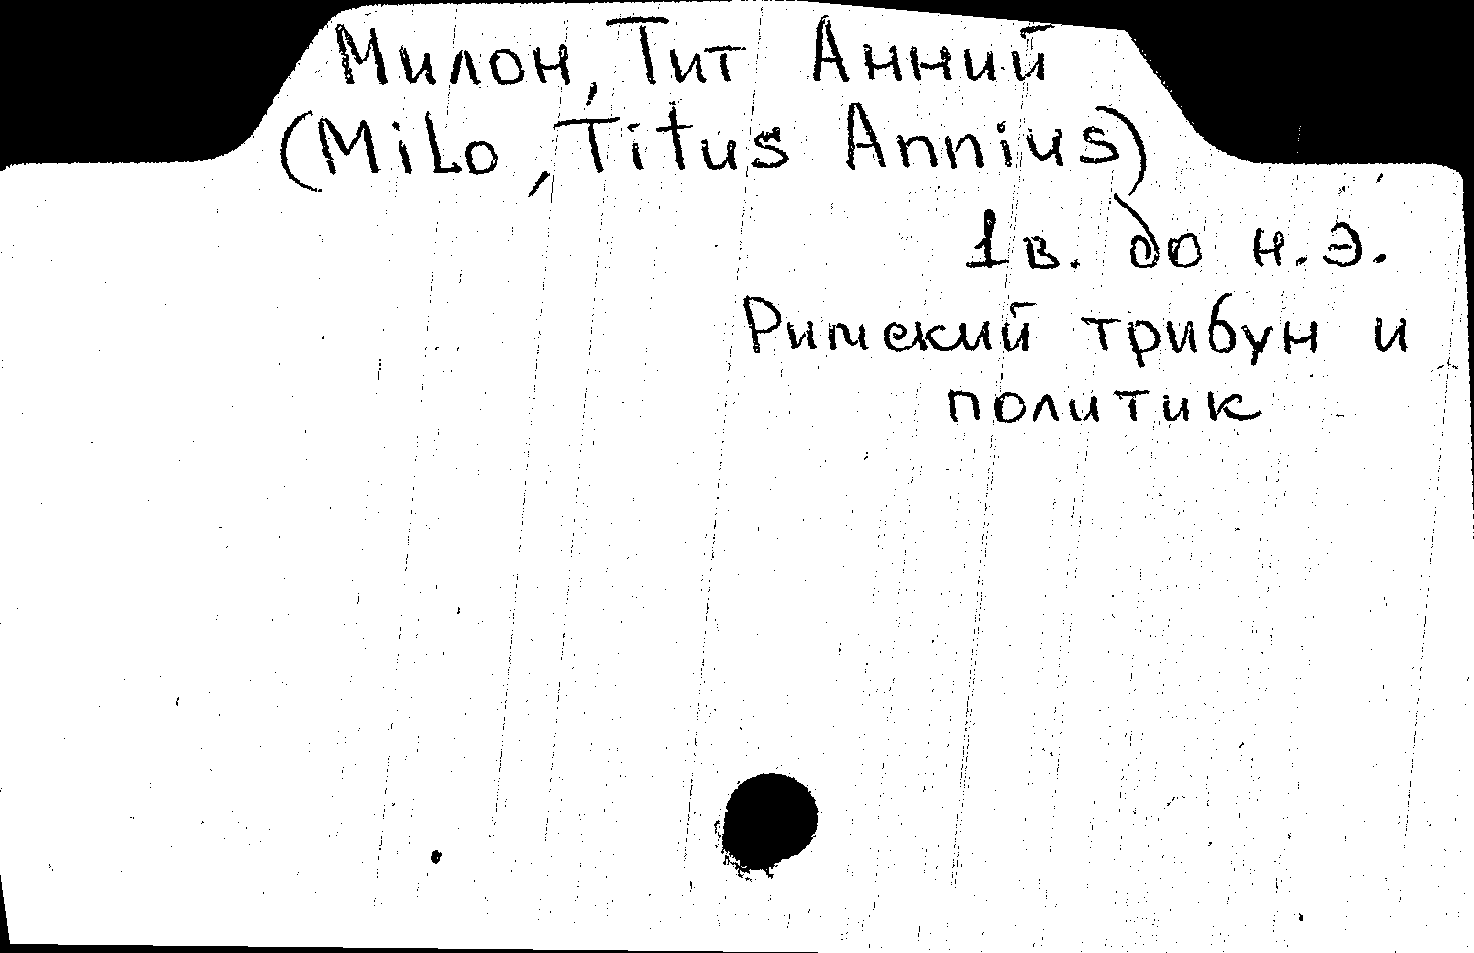 Милон, Тит Анний
(Milo, Titus Annius)
1 в. до н.э.
Римский трибун и
политик